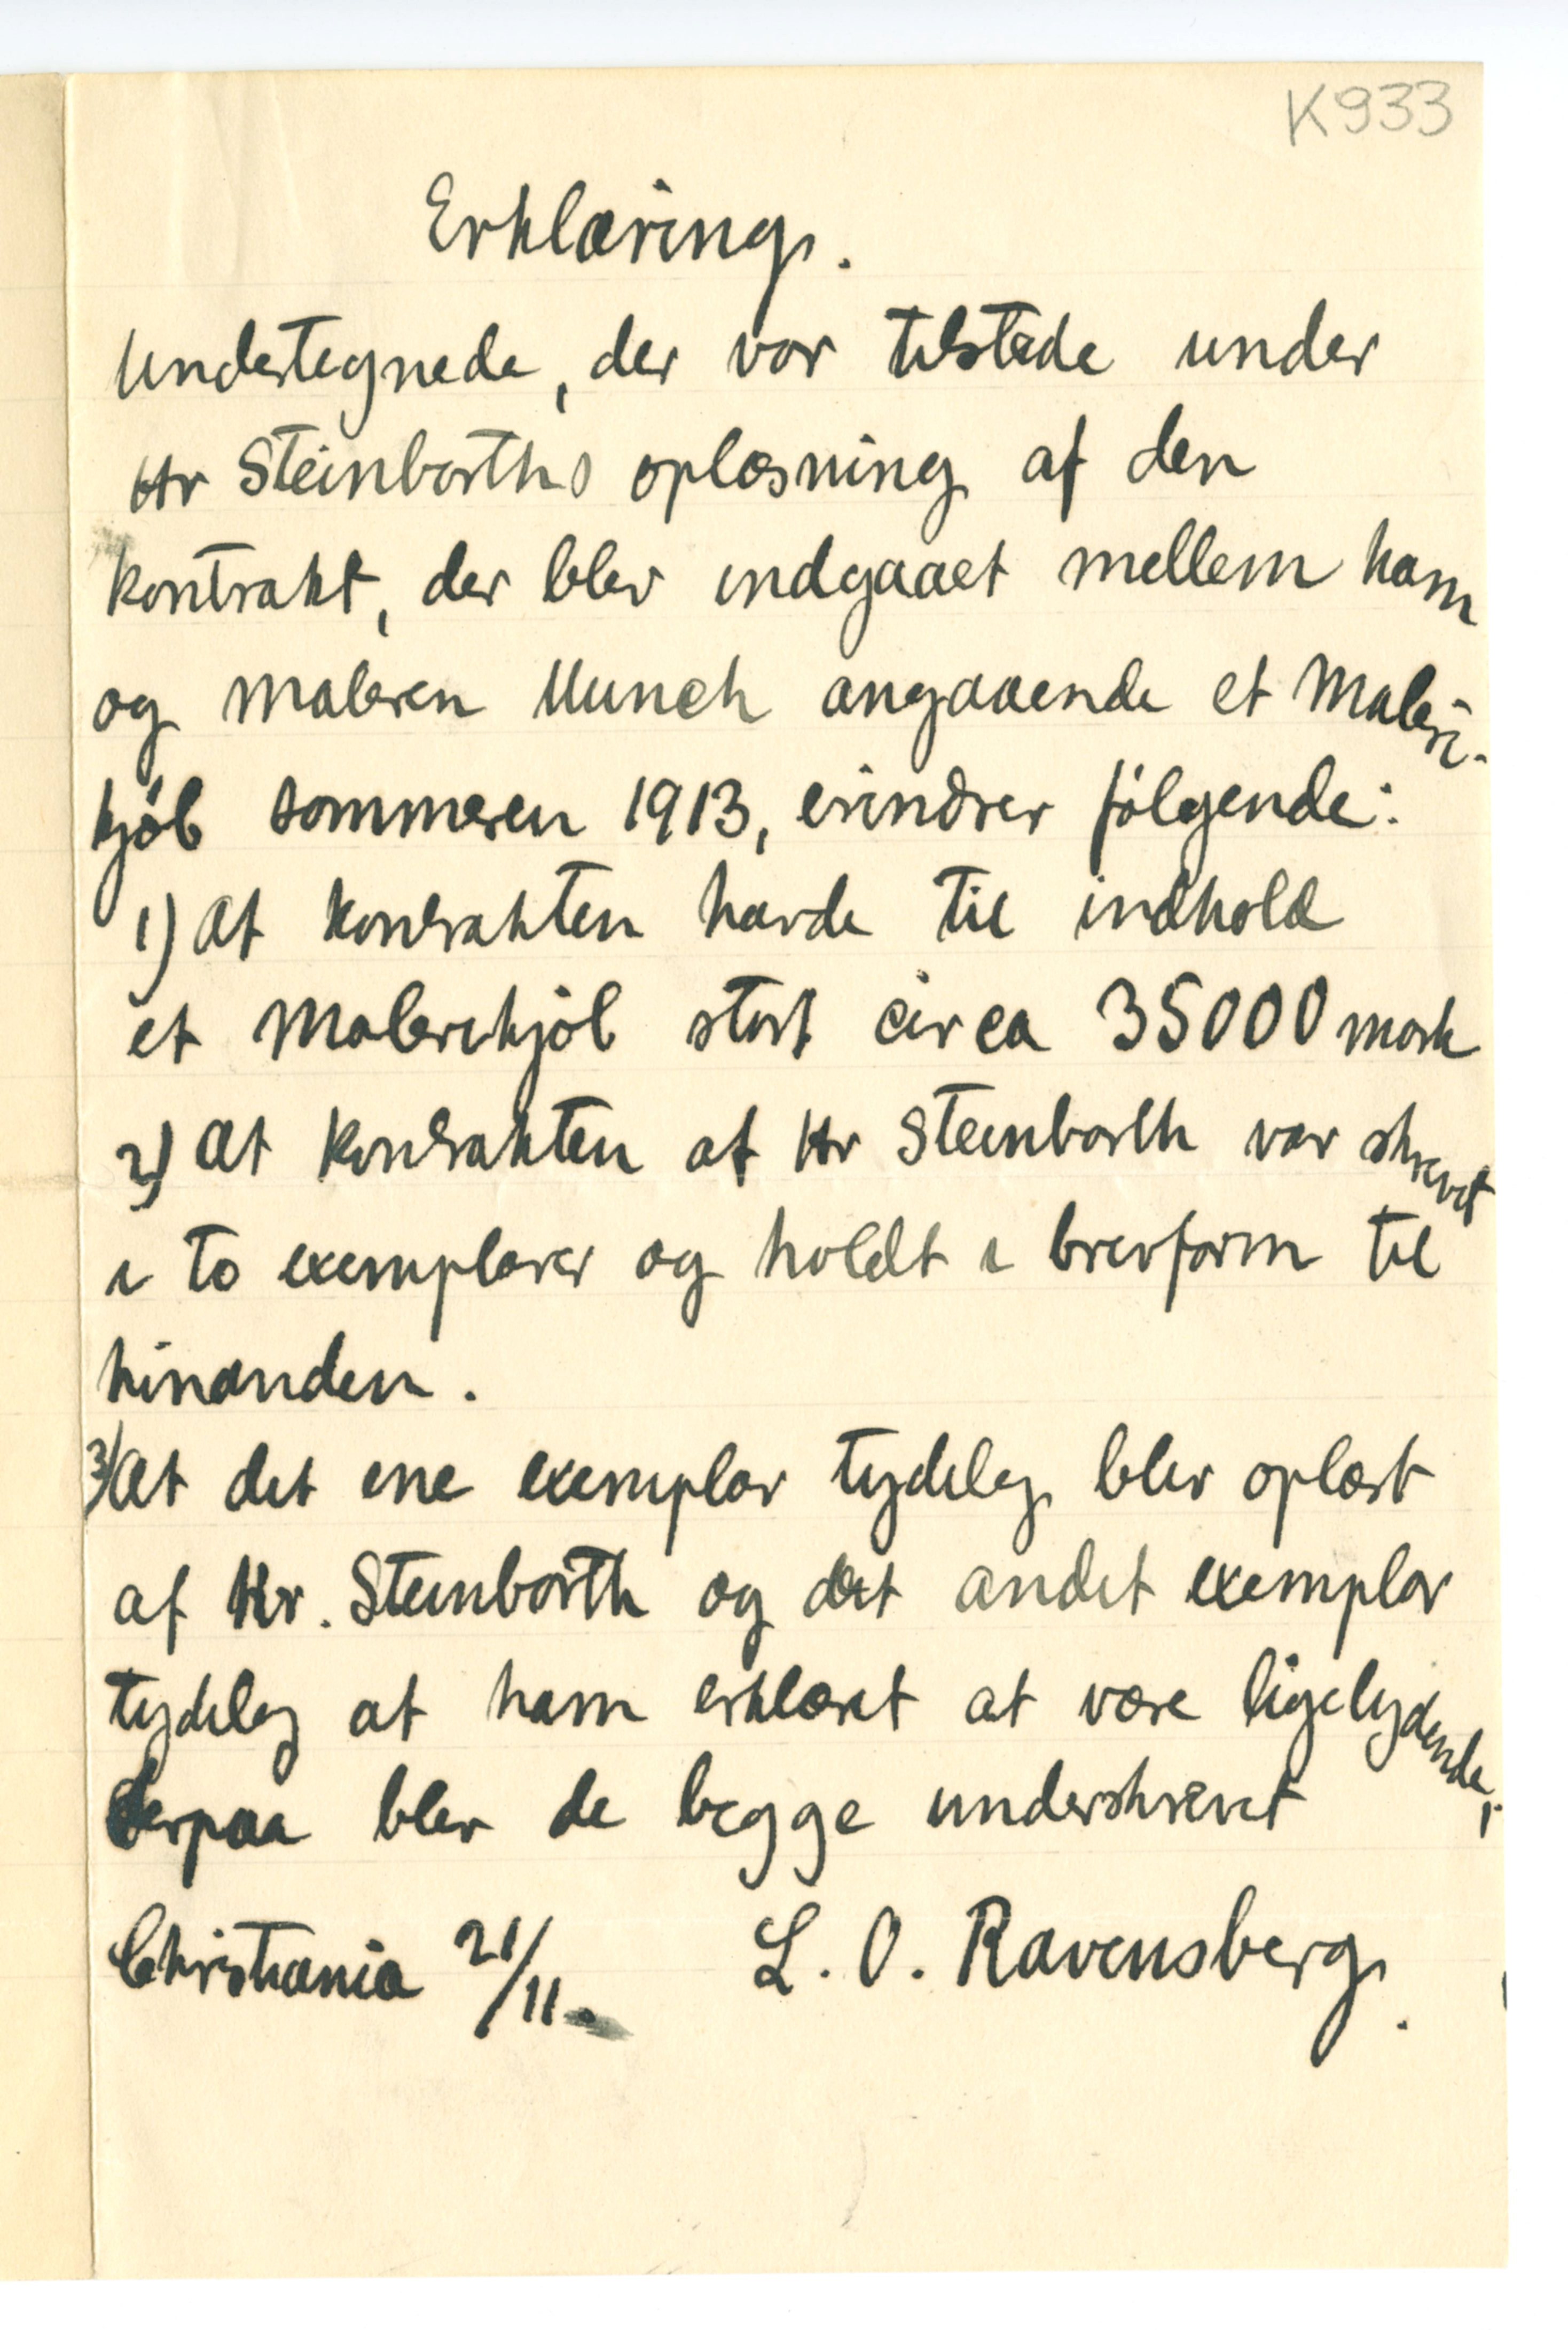 K933
Erklæring.
Undertegnede, der var tilstede under
Hr Steinbarths oplæsning af den
kontrakt, der blev indgaaet mellem ham
og Maleren Munch angaaende et Maleri-
kjöb sommeren 1913, erindrer fölgende:
1) At kontrakten havde til indhold
et Malerikjöb stort circa 35000 mark
2) At kontrakten af Hr Steinbarth var skrevet
i to exemplarer og holdt i brevform til
hinanden.
3) At det ene exemplar tydelig blev oplæst
af Hr. Steinbarth og det andet exemplar
tydelig af ham erklæret at være ligelydende;
Derpaa blev de begge underskrevet
Christiania 21/11. L. O. Ravensberg.